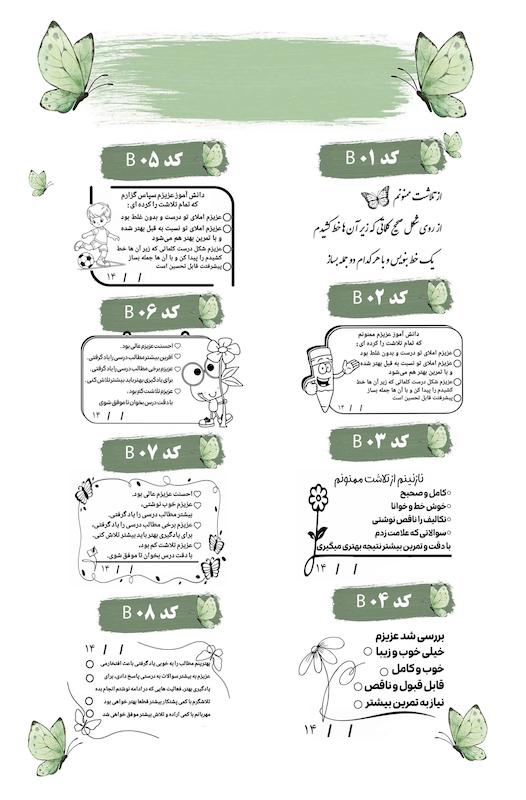 کد B ۰۱
از تلاشت ممنونم
از روی شکل صحیح کلماتی که زیر آن ها خط کشیدم
یک خط بنویس و با هر کدام دو جمله بساز
کد B ۰۲
دانش آموز عزیزم ممنونم
که تمام تلاشت را کرده ای :
عزیزم املای تو درست و بدون غلط بود
عزیزم املای تو نسبت به قبل بهتر شده
و با تمرین بهتر هم می‌شود
عزیزم شکل درست کلماتی که زیر آن ها خط
کشیدم را پیدا کن و با آن ها جمله بساز
پیشرفتت قابل تحسین است
۱۴ / /
کد B ۰۳
نازنینم از تلاشت ممنونم
کامل و صحیح
خوش خط و خوانا
تکالیف را ناقص نوشتی
سوالاتی که علامت زدم
با دقت و تمرین بیشتر نتیجه بهتری میگیری
۱۴ / /
کد B ۰۴
بررسی شد عزیزم
خیلی خوب و زیبا
خوب و کامل
قابل قبول و ناقص
نیاز به تمرین بیشتر
۱۴ / /
کد B ۰۵
دانش آموز عزیزم سپاس گزارم
که تمام تلاشت را کرده ای :
عزیزم املای تو درست و بدون غلط بود
عزیزم املای تو نسبت به قبل بهتر شده
و با تمرین بهتر هم می‌شود
عزیزم شکل درست کلماتی که زیر آن ها خط
کشیدم را پیدا کن و با آن ها جمله بساز
پیشرفتت قابل تحسین است
۱۴ / /
کد B ۰۶
احسنت عزیزم عالی بود.
آفرین بیشتر مطالب درسی را یاد گرفتی.
عزیزم برخی مطالب درسی را یاد گرفتی،
برای یادگیری بهتر باید بیشتر تلاش کنی.
عزیزم تلاشت کم بود،
با دقت درس بخوان تا موفق شوی
۱۴ / /
کد B ۰۷
احسنت عزیزم عالی بود.
عزیزم خوب نوشتی،
بیشتر مطالب درسی را یاد گرفتی.
عزیزم برخی مطالب درسی را یاد گرفتی،
برای یادگیری بهتر باید بیشتر تلاش کنی.
عزیزم تلاشت کم بود،
با دقت درس بخوان تا موفق شوی.
۱۴ / /
کد B ۰۸
۱۴ / /
بهترینم مطالب را به خوبی یاد گرفتی باعث افتخارمی
عزیزم به بیشتر سوالات به درستی پاسخ دادی، برای
یادگیری بهتر، فعالیت هایی که در ادامه نوشتم انجام بده
تلاشگرم با کمی پشتکار بیشتر قطعا بهتر خواهی بود
مهربانم با کمی اراده و تلاش بیشتر موفق خواهی شد